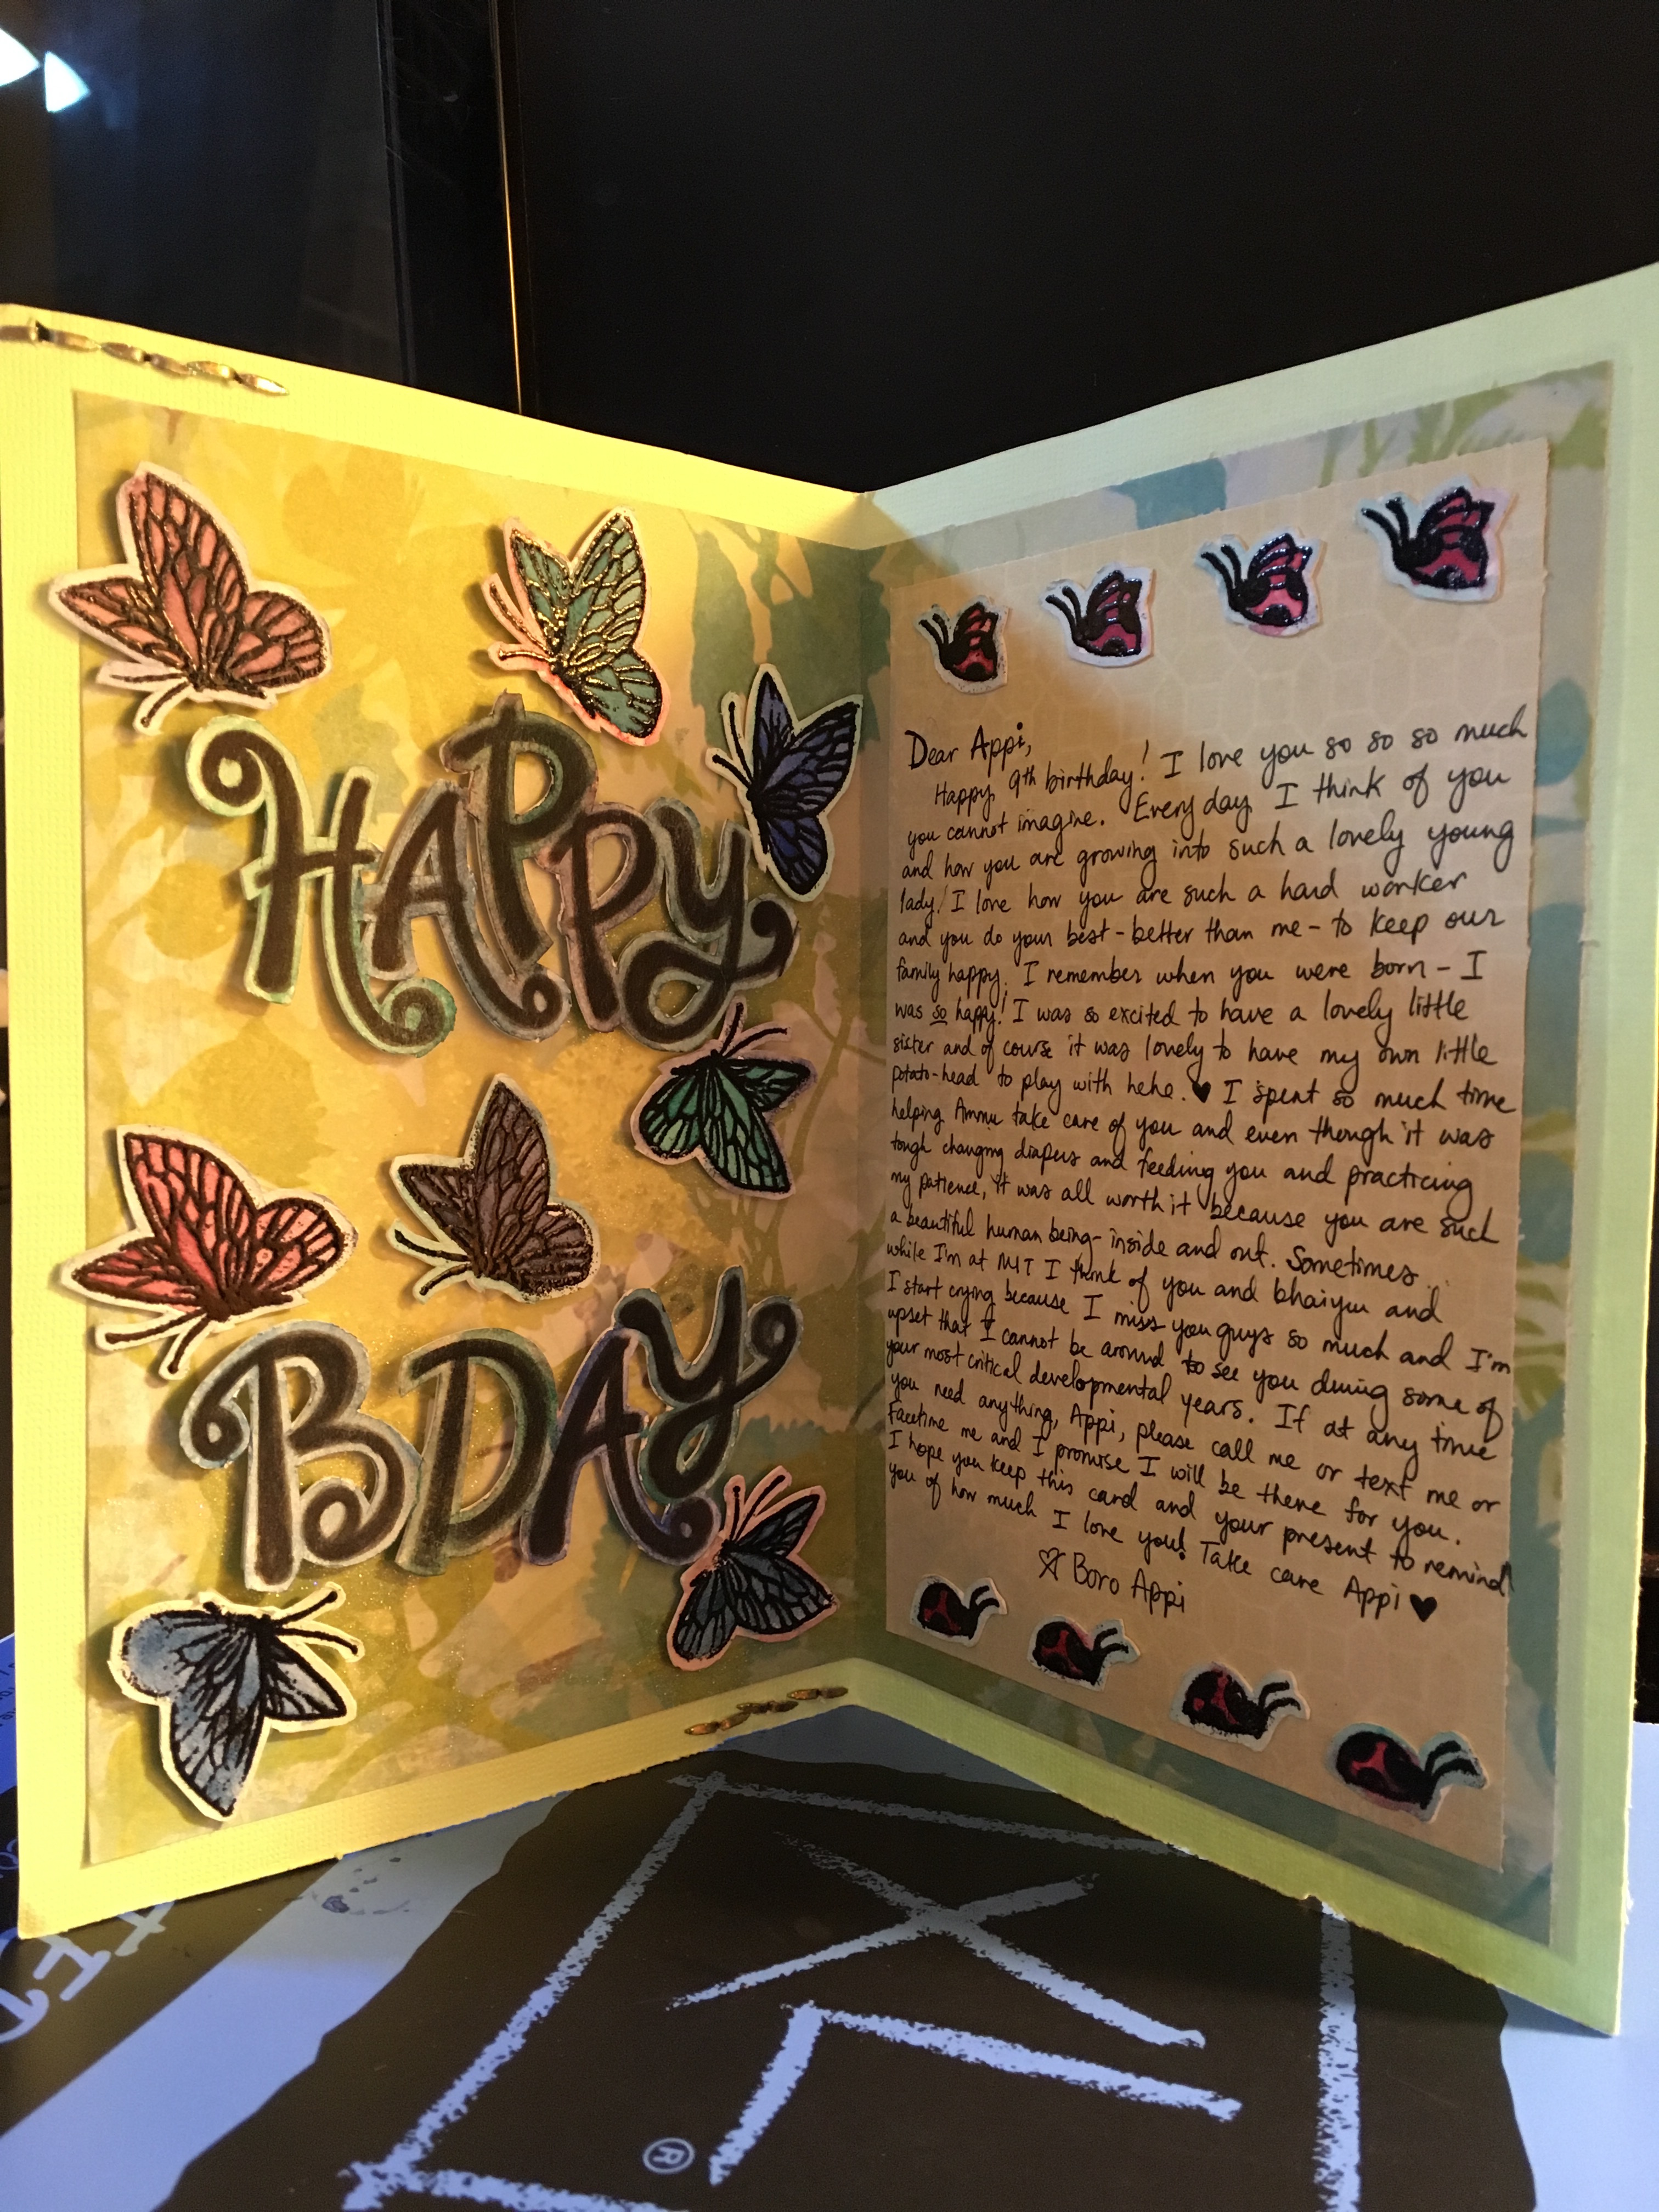 HAPPY
BDAY
Dear Appi,
Happy 9th birthday! I love you so so so much
you cannot imagine. Every day I think of you
and how you are growing into such a lovely young
lady! I love how you are such a hard worker
and you do your best - better than me - to keep our
family happy. I remember when you were born - I
was so happy! I was so excited to have a lovely little
sister and of course it was lovely to have my own little
potato-head to play with hehe. ♥ I spent so much time
helping Ammu take care of you and even though it was
tough changing diapers and feeding you and practicing
my patience, it was all worth it because you are such
a beautiful human being - inside and out. Sometimes..
while I'm at MIT I think of you and bhaiyu and
I start crying because I miss you guys so much and I'm
upset that I cannot be around to see you during some of
your most critical developmental years. If at any time
you need anything, Appi, please call me or text me or
Facetime me and I promise I will be there for you.
I hope you keep this card and your present to remind
you of how much I love you! Take care Appi ♥
Boro Appi
®